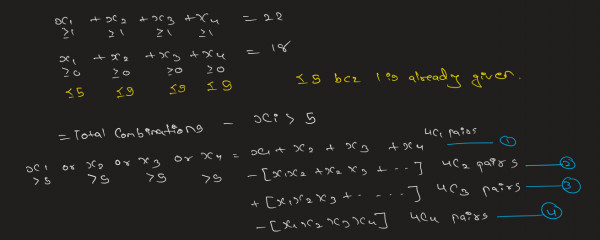 x₁ + x₂ + x₃ + x₄ = 22
≥1 ≥1 ≥1 ≥1
x₁ + x₂ + x₃ + x₄ = 18
≥0 ≥0 ≥0 ≥0
≤5 ≤9 ≤9 ≤9 ≤9 bcz 1 is already given.
= Total Combinations - xi > 5
x₁ or x₂ or x₃ or x₄ = x₁ + x₂ + x₃ + x₄ 4C₁ pairs 1
>5 >5 >5 >5 - [x₁x₂ + x₂x₃ + ...] 4C₂ pairs 2
+ [x₁x₂x₃ + ....] 4C₃ pairs 3
- [x₁x₂x₃x₄] 4C₄ pairs 4